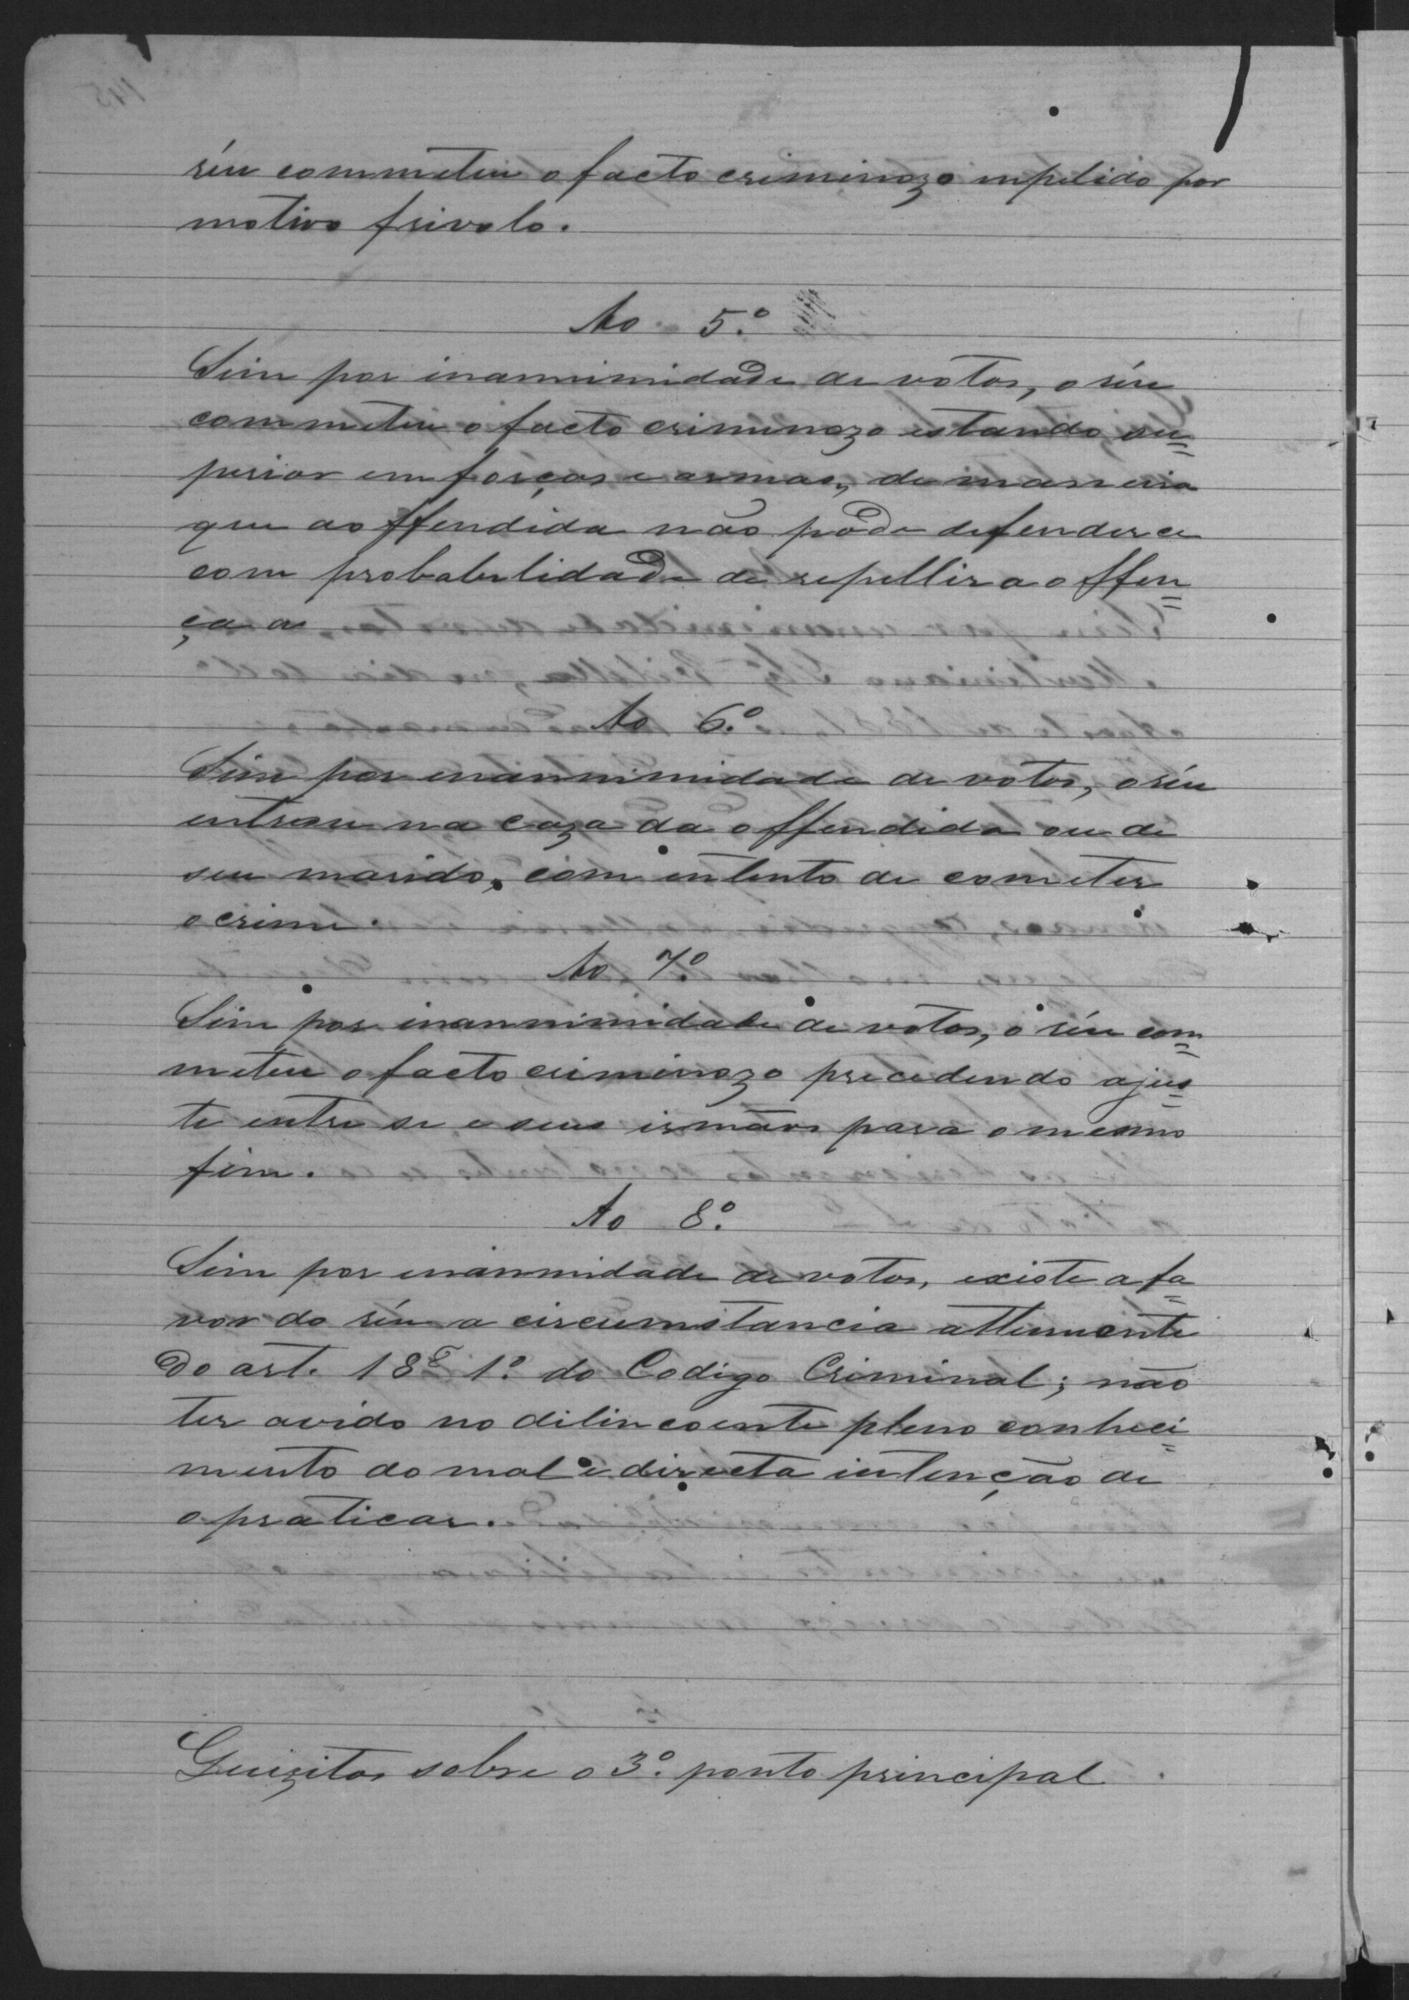 réu commeteu o facto criminozo inpelido por
motivo frivolo.
Ao 5.º
Sim por inannimidade de votos, o réu
commeteu o facto criminozo estando su=
perior em forças e armas, de maneira
que a offendida não pôde defender ce
com probabelidade de repellir a offen=
ça a
Ao 6.º
Sim por inannimidade de votos, o réu
entrou na caza da offendida ou de
seu marido, com intento de cometer
o crime.
Ao 7.º
Sim por inannimidade de votos, o réu com=
meteu o facto criminozo precedendo ajus=
te entre si e seus irmãos para o mesmo
fim.
Ao 8.º
Sim por inanmidade de votos, existe a fa=
vor do réu a circumstancia attenuente
do art. 18 § 1.º do Codigo Criminal; não
ter avido no dilincoente pleno conheci=
mento do mal e directa intenção de
o praticar.
Quizitos sobre o 3.º ponto principal